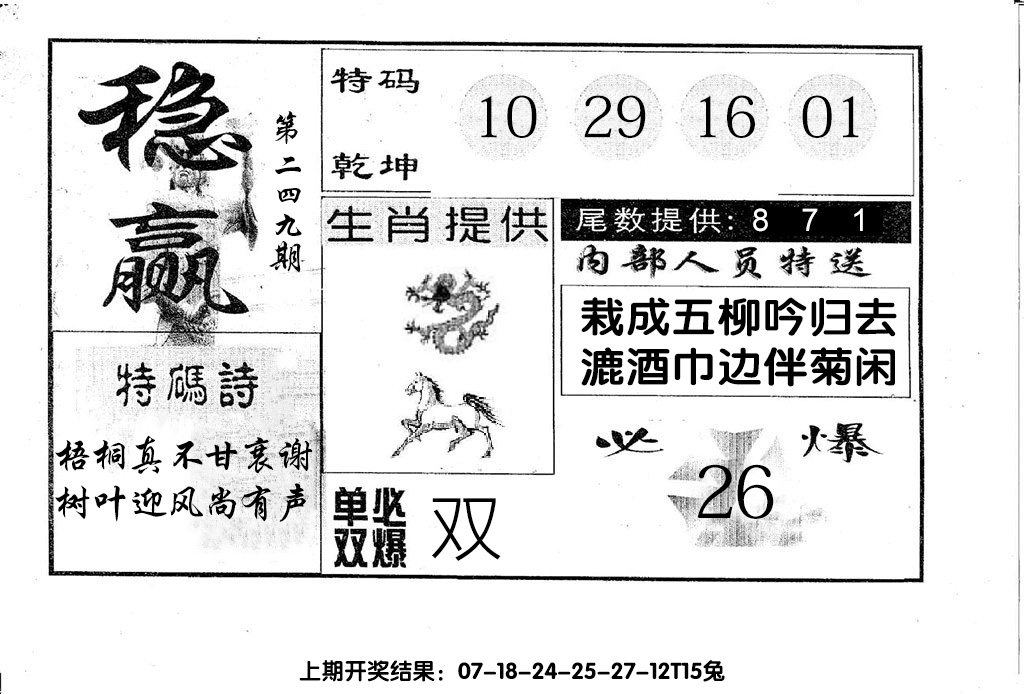 稳赢
第二四九期
特码
乾坤
10 29 16 01
特碼詩
梧桐真不甘衰谢
树叶迎风尚有声
生肖提供
单双必爆
双
尾数提供: 8 7 1
内部人员特送
栽成五柳吟归去
漉酒巾边伴菊闲
必爆
26
上期开奖结果：07-18-24-25-27-12T15兔